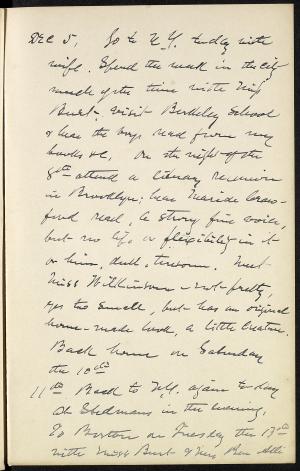 Dec 5, Go to N.Y. to-day with
wife. Spend the week in the city
much of the time with Miss
Burt, visit Berkeley School
& hear the boys read from my
books &c. On the night of the
8th attend a literary reunion
in Brooklyn; hear Maride Craw-
ford read, a strong fine voice,
but no life or flexibility in it
or him, dull, tiresome. Meet
Miss Wilkinson – not pretty,
eyes too small, but has an original
home-made look, a little creature.
Back home on Saturday
the 10th
11th Back to N.Y. again to-day
at Stedmans in the evening,
To Boston on Tuesday the 13th
with Miss Burt & Mrs Ben Alli